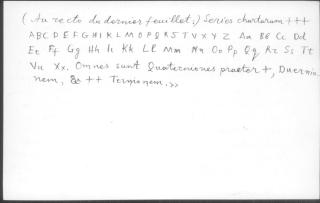 ( Au recto du dernier feuillet :) Series chartarum +++
A B C D E F G H I K L M O P Q R S T V X Y Z Aa Bb Cc Dd
Ee Ff Gg Hh Ii Kk Ll Mm Nn Oo Pp Qq Rr Ss Tt
Vu Xx. Omnes sunt Quaterniones praeter +, Duernio
nem, & ++ Ternionem. »